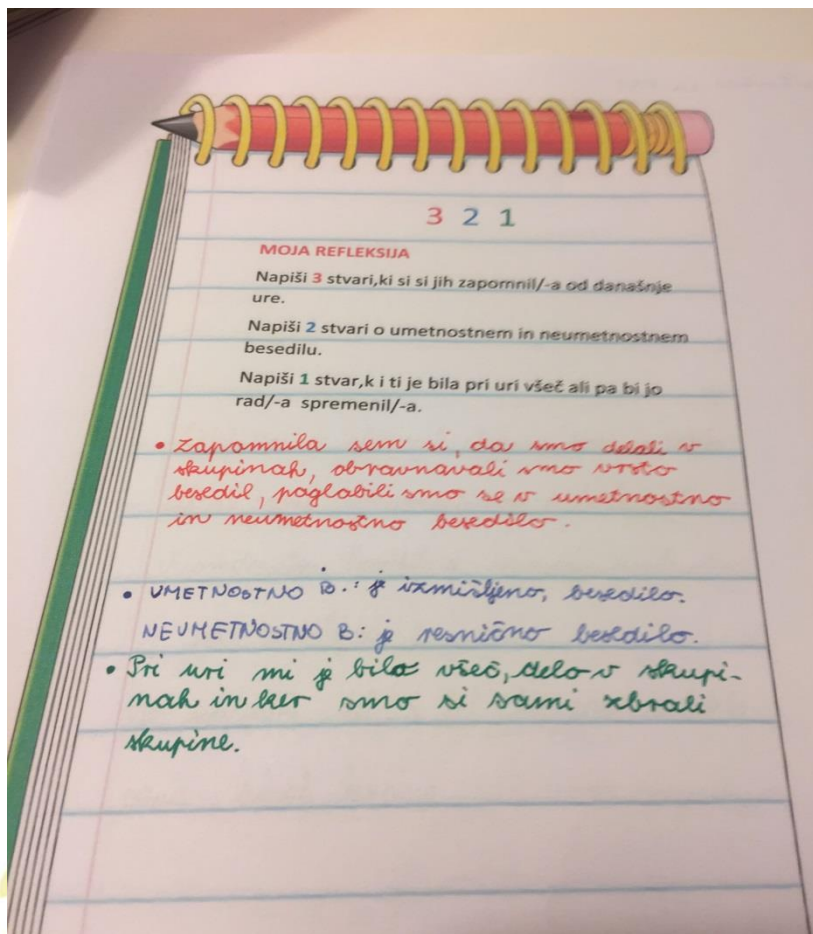 3 2 1
MOJA REFLEKSIJA
Napiši 3 stvari,ki si si jih zapomnil/-a od današnje
ure.
Napiši 2 stvari o umetnostnem in neumetnostnem
besedilu.
Napiši 1 stvar,k i ti je bila pri uri všeč ali pa bi jo
rad/-a spremenil/-a.
• Zapomnila sem si, da smo delali v
skupinah, obravnavali smo vrsto
besedil, poglobili smo se v umetnostno
in neumetnostno besedilo.
• UMETNOSTNO B.: je izmišljeno, besedilo.
NEUMETNOSTNO B: je resnično besedilo.
• Pri uri mi je bilo všeč, delo v skupi-
nah in ker smo si sami zbrali
skupine.